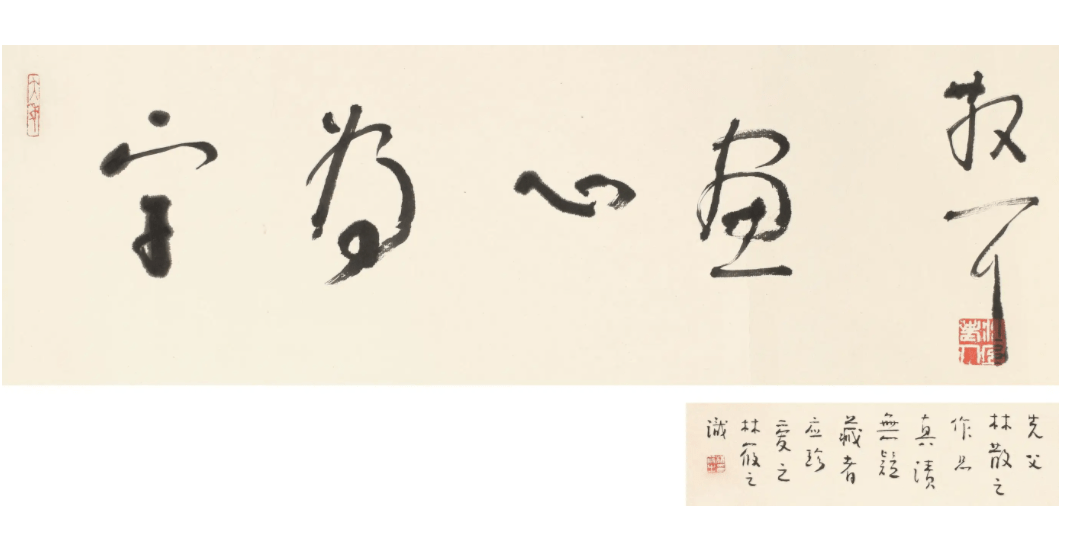 字為心畫
散耳
先父
林散之
作品
真蹟
無疑
藏者
应珍
愛之
林筱之
識